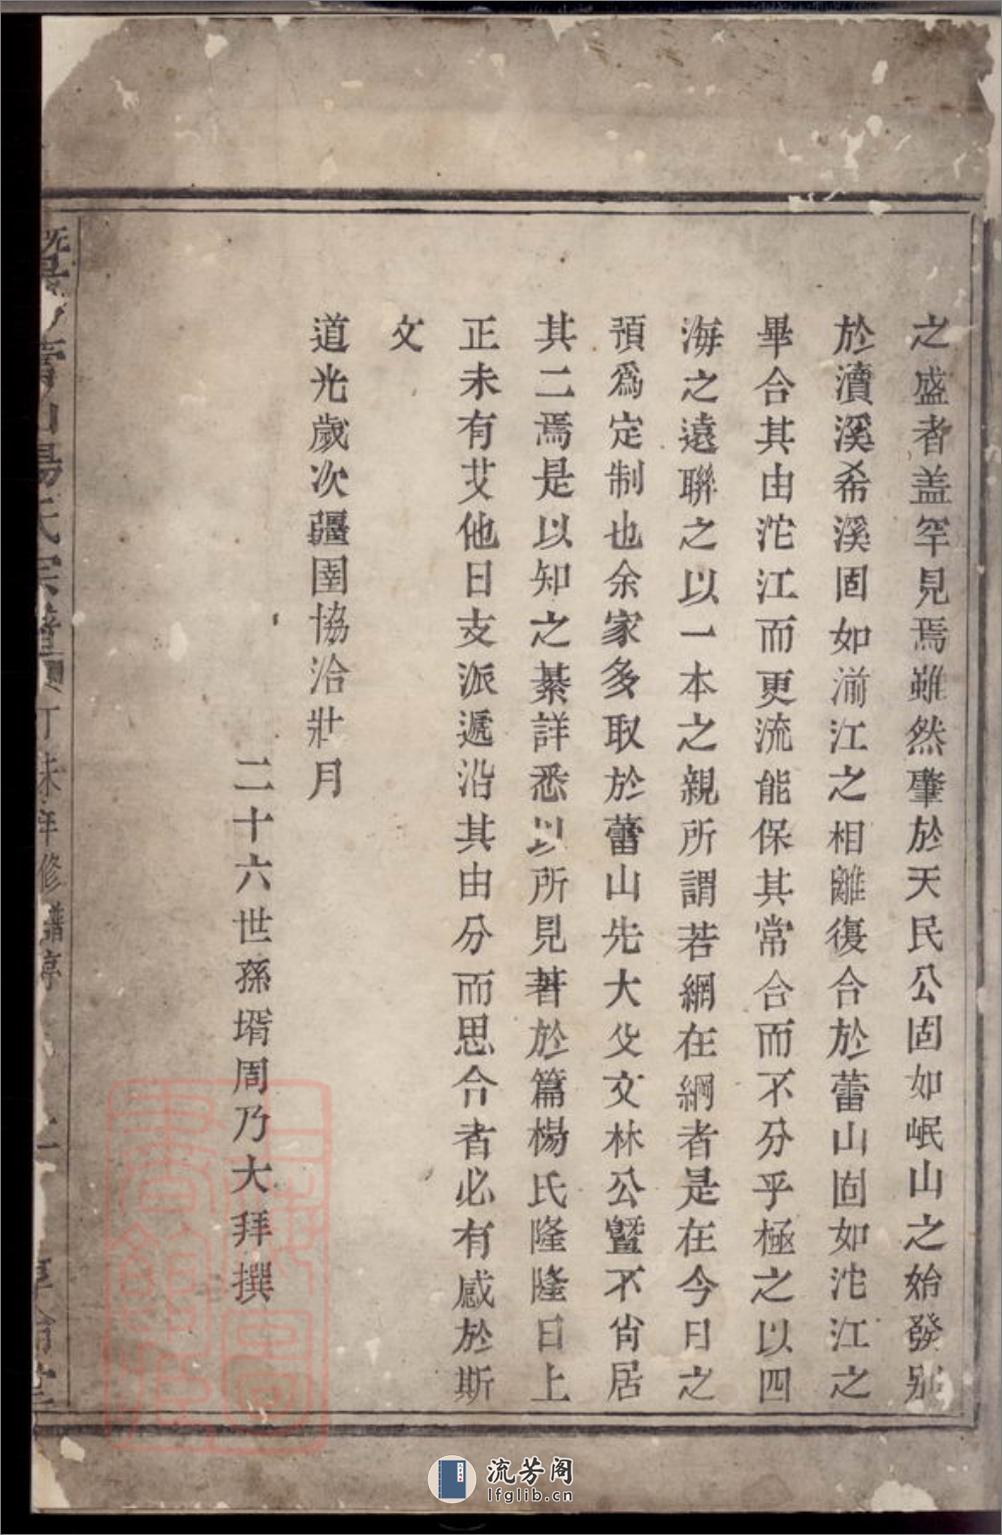 之盛者盖罕見焉雖然肇於天民公固如岷山之始發別
於瀆溪希溪固如湔江之相離復合於蕾山固如沱江之
畢合其由沱江而更流能保其常合而不分乎極之以四
海之遠聯之以一本之親所謂若網在綱者是在今日之
預爲定制也余家多取於蕾山先大父文林公暨不肖居
其二焉是以知之綦詳悉以所見著於篇楊氏隆隆日上
正未有艾他日支派遞沿其由分而思合者必有感於斯
文
道光歲次疆圉協洽壯月
二十六世孫壻周乃大拜撰
暨陽 山楊氏宗譜
丁未年修譜序
流芳阁
lfglib.cn